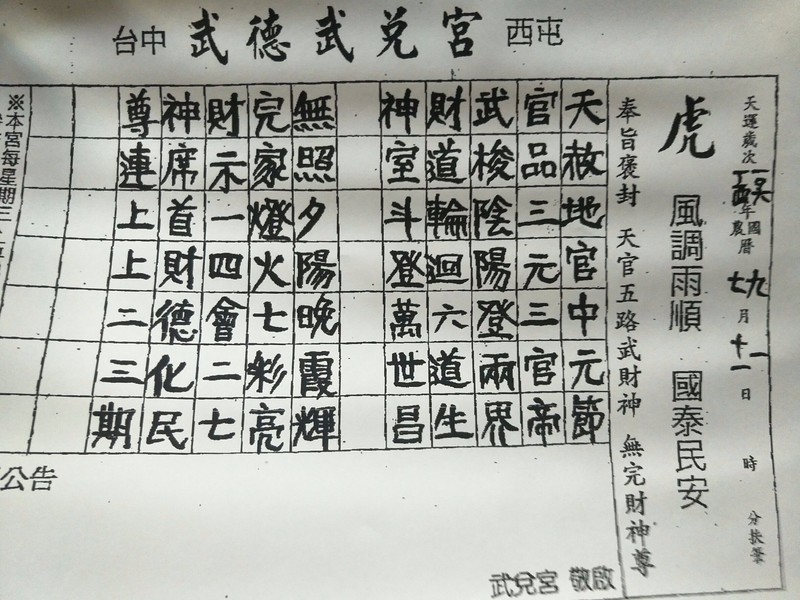 台中 武德武兌宮 西屯
天運歲次 年 國曆 農曆 九 七 月 十一 日 時 分扶筆
虎 風調雨順 國泰民安
奉旨褒封 天官五路武財神 無完財神尊
天赦地官中元節
官品三元三官帝
武梭陰陽登兩界
財道輪迴六道生
神室斗登萬世昌
無照夕陽晚霞輝
完家燈火七彩亮
財示一四會二七
神席首財德化民
尊連上上二三期
※本宮每星期三
公告
武兌宮 敬啟